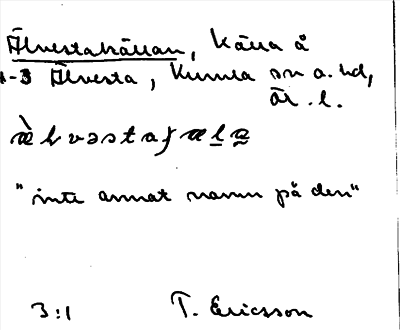 Älvestakällan, Källa å
1-3 Älvesta, Kumla sn o. hd,
Ör. l.
"inte annat namn på den"
3:1 T. Ericsson